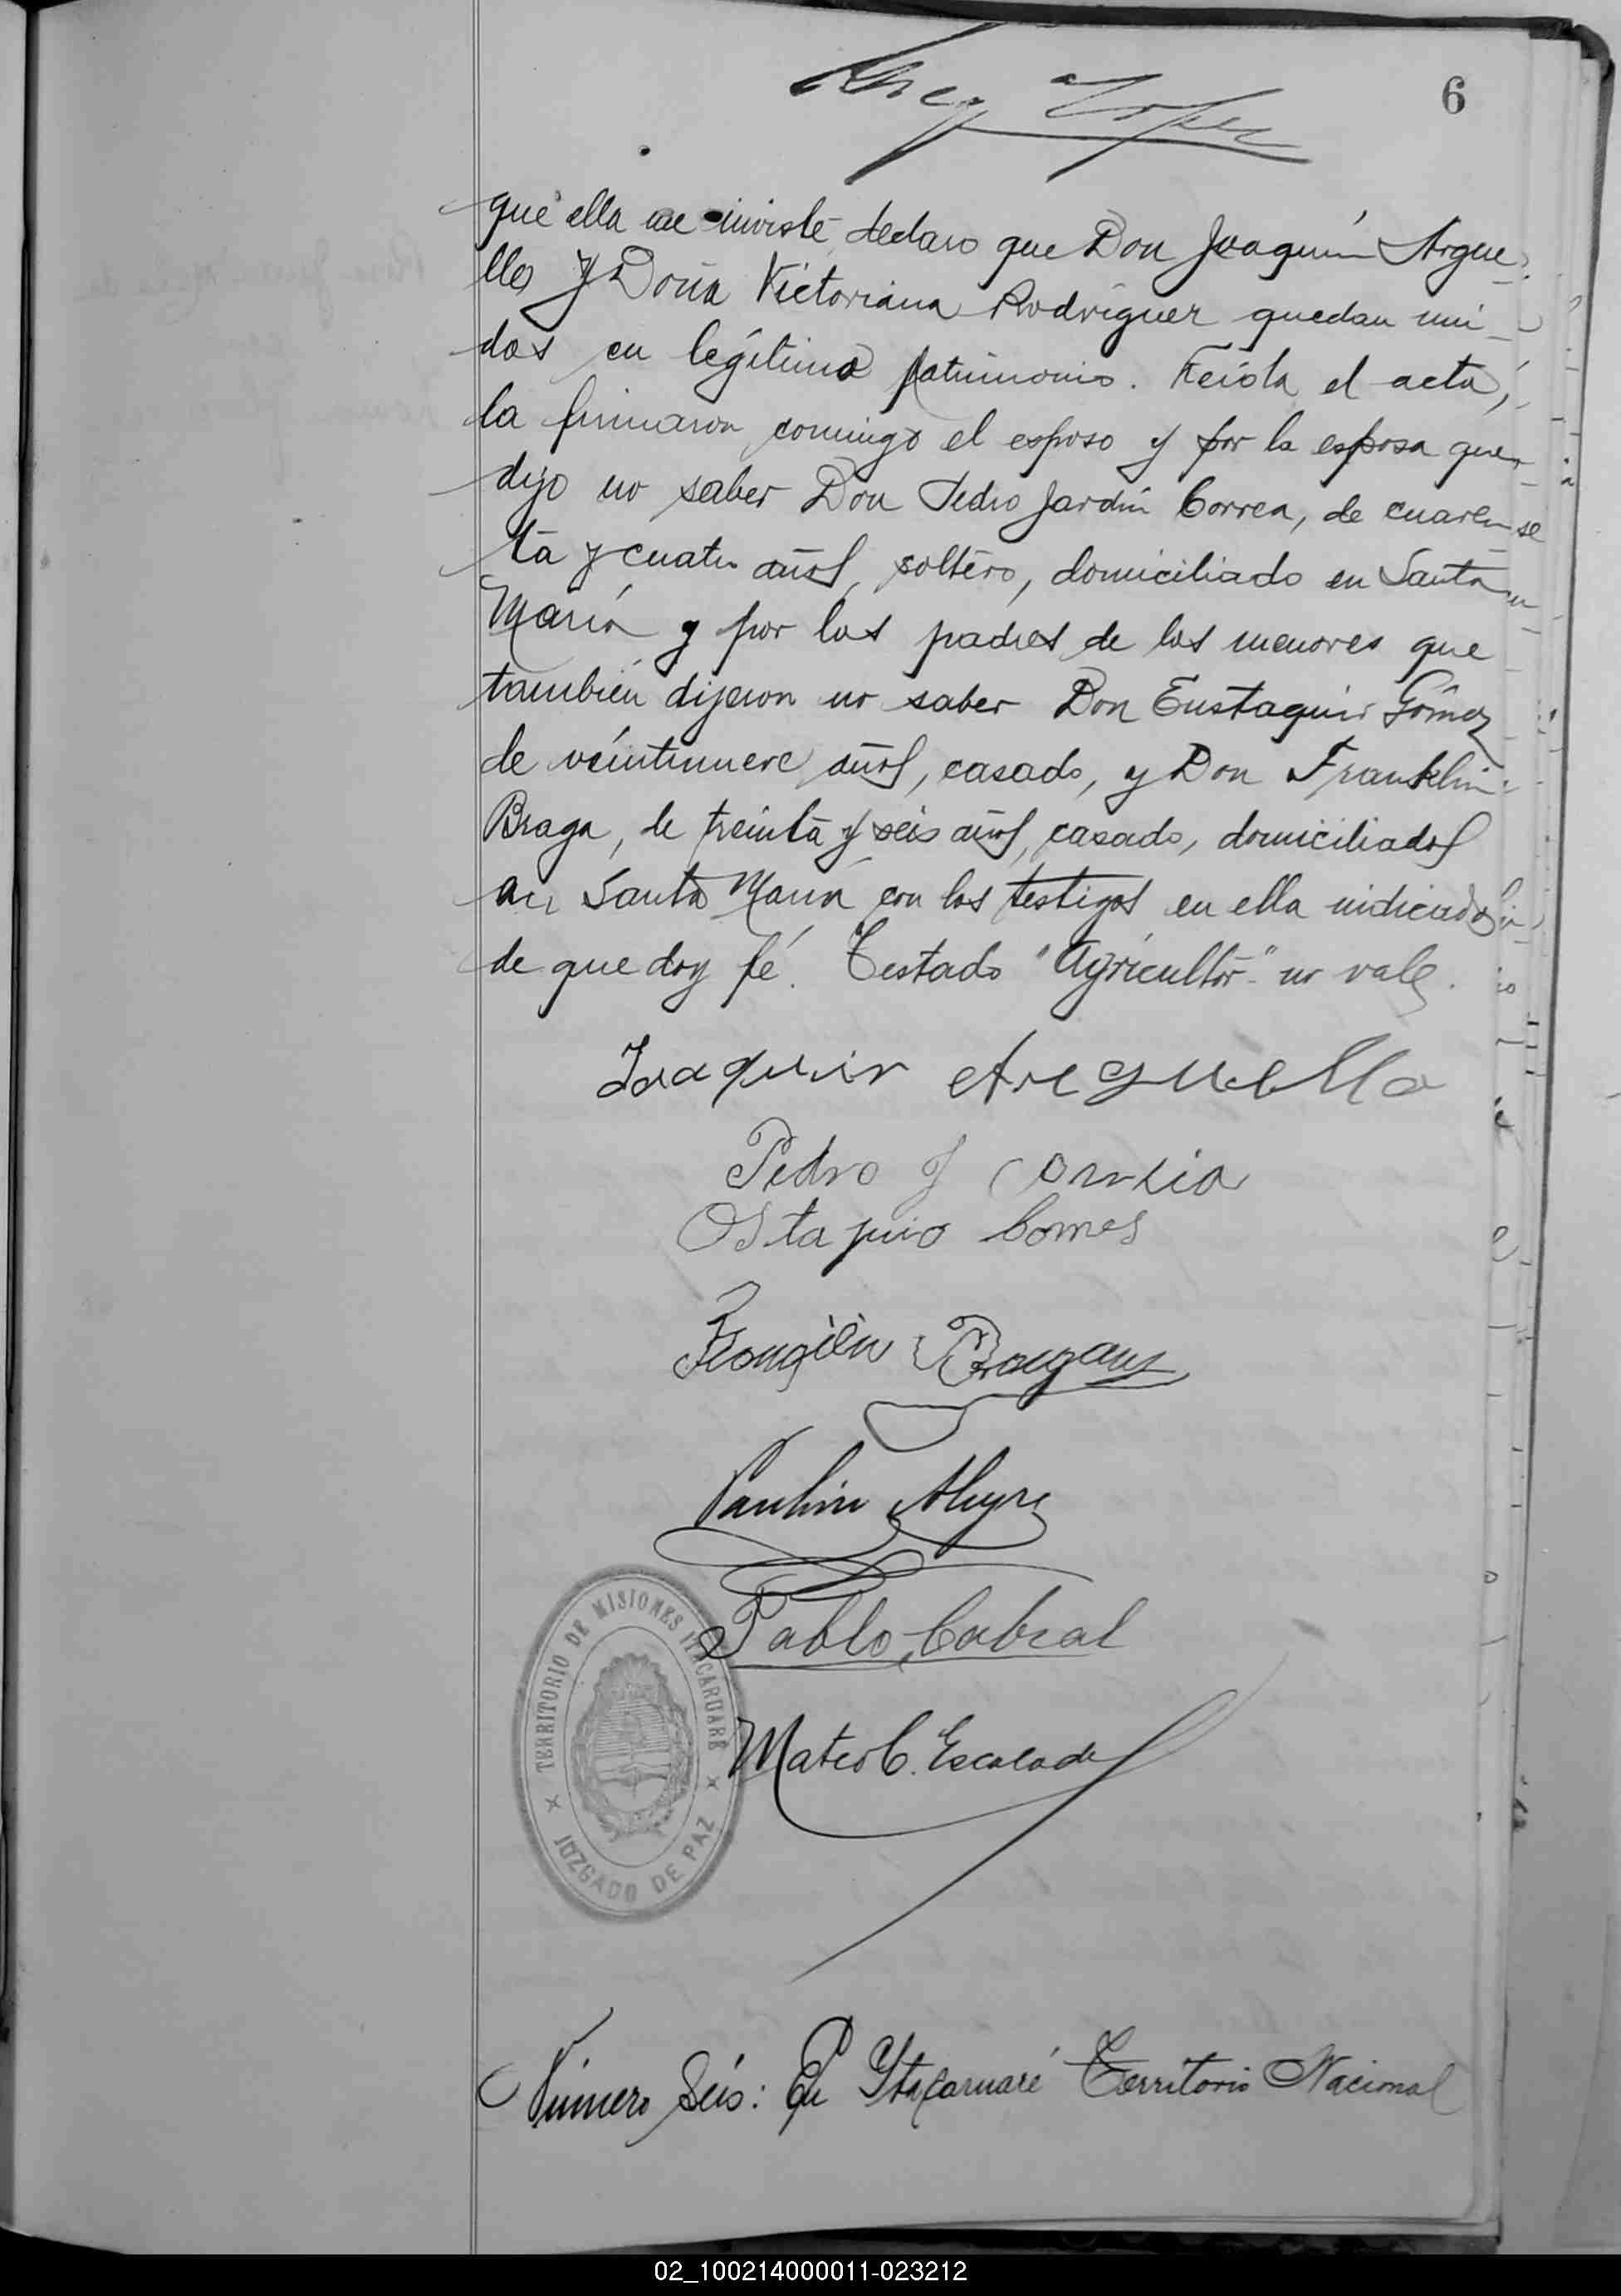 6
que ella me inviste, declaro que Don Joaquín Argue-
llo y Doña Victoriana Rodriguez quedan uni-
dos en legítimo matrimonio. Leída el acta,
la firmaron comingo el esposo y por la esposa que
dijo no saber Don Pedro Jardín Correa, de cuaren-
ta y cuatro años, soltero, domiciliado en Santa
María y por los padres de los menores que
también dijeron no saber Don Eustaquio Gómez
de veintinueve años, casado, y Don Franklin
Braga, de treinta y seis años, casado, domiciliados
en Santa María con los testigos en ella indicados
de que doy fé. Testado "Agricultor" no vale.
Joaquin Arguello
Pedro J Correia
Ostaquio Gomes
Pablo Cabral
Mateo C. Escalada
TERRITORIO DE MISIONES ITACARUARÉ
JUZGADO DE PAZ
Número Seis: En Ytacaruaré Territorio Nacional
02_100214000011-023212